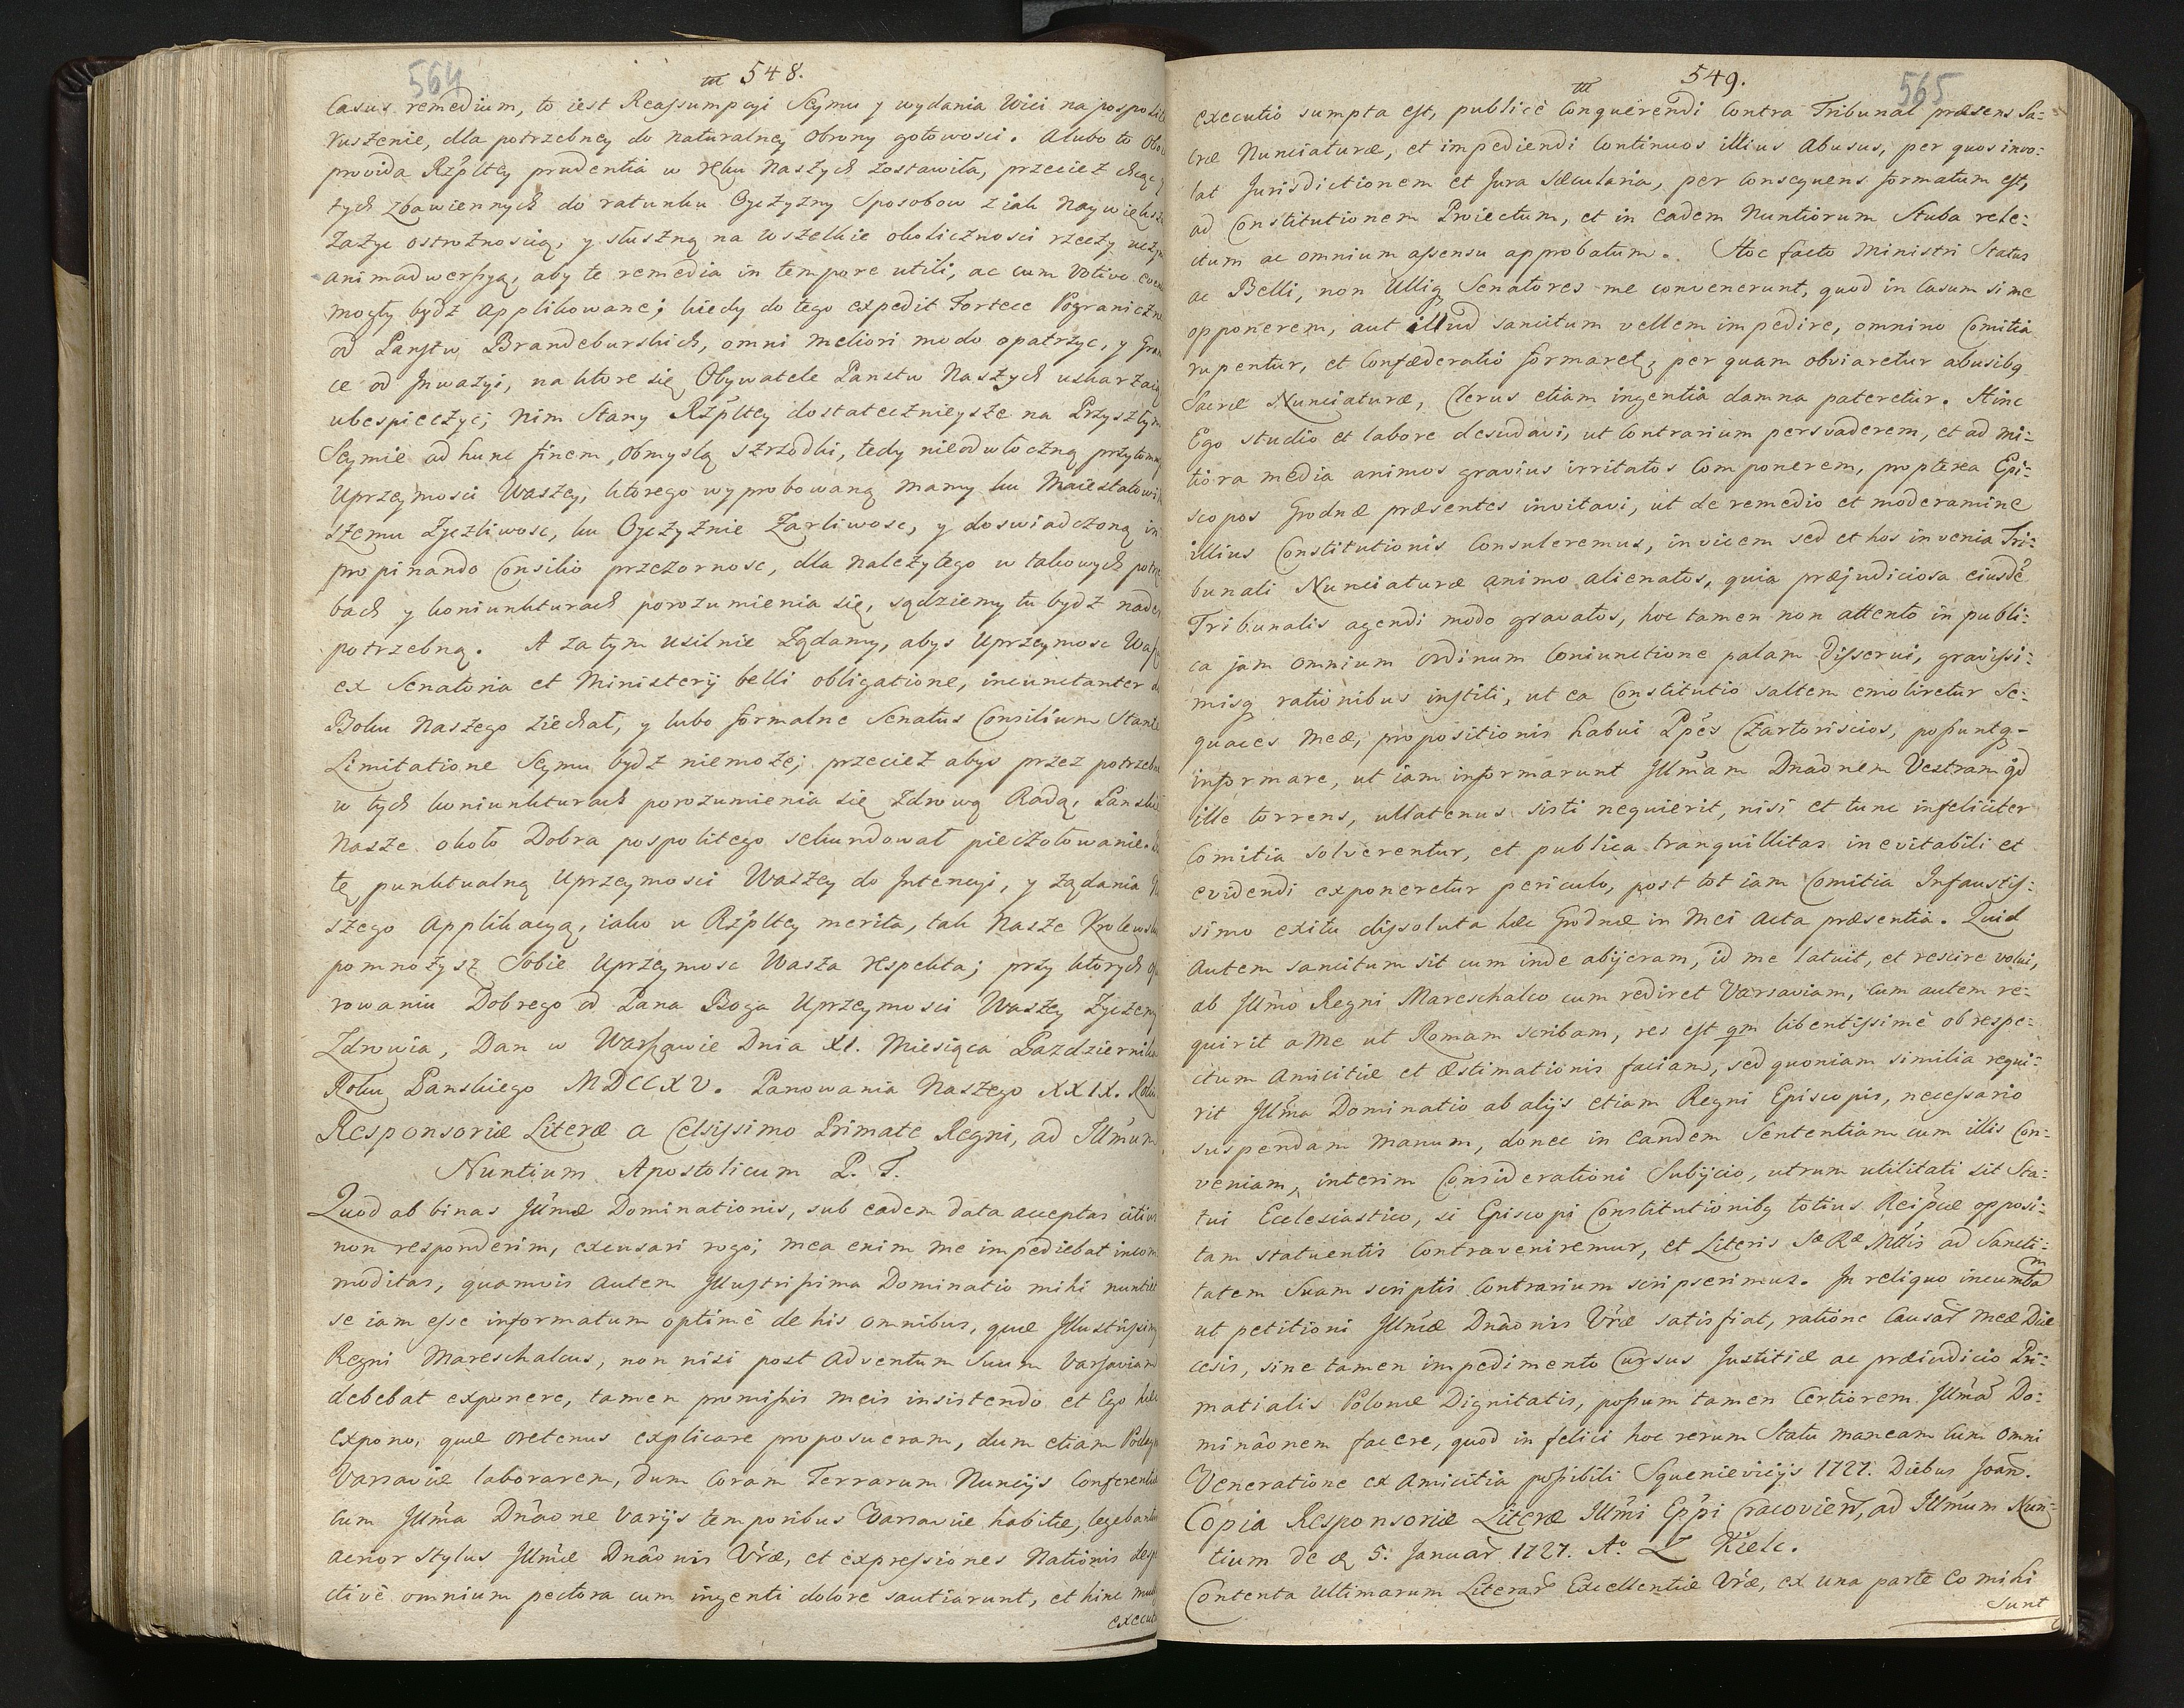 564
548.
Casus remedium, to iest Reassumpcyi Seymu y wydania Wici na pospolite
ruszenie, dla potrzebney do naturalney obrony gotowosci. Alubo to
provida Rzpltey prudentia w ręku Naszych zostawiła, przecież chcąc
tych zbawiennych do ratunku Oyczyzny Sposobow z iak Naywiększą
zażyc ostrożnoscią, y słuszną na wszelkie okoliczności rzeczy
animadwersyą, aby te remedia in tempore utili, ac cum votivo
mogły bydź applikowane; kiedy do tego expedit Fortece Pograniczne
od Panstw Brandeburskich, omni meliori modo opatrzyc, y
ce od Inwazyi, na ktore się Obywatele Panstw Naszych uskarzaią
ubespieczyc; nim Stany Rzpltey dostatecznieysze na Przyszłym
Seymie ad hunc finem, obmyslą szrzodki, tedy nieodwłoczną
Uprzeymosci Waszey, ktorego wyprobowaną mamy ku Maiestatowi
szemu życzliwosc, ku Oyczyznie żarliwosc, y doswiadczoną in
propinando Consilio przezornosc, dla należytego w takowych
bach y koniunkturach porozumienia się, sądziemy tu bydź
potrzebną. A zatym usilnie żądamy, abys Uprzeymosc
ex Senatoria et Ministerij belli obligatione, incunctanter
Boku Naszego ziechał, y lubo formalne Senatus Consilium Stante
Limitatione Seymu bydź niemoże; przecież abys przez
w tych koniunkturach porozumienia się zdrową Radą,
Nasze około Dobra pospolitego sekundował pieczołowanie.
tę punktualną Uprzeymosci Waszey do Intencyi, y żądania
szego applikacyą, iako u Rzpltey merita, tak Nasze
pomnożysz Sobie Uprzeymosc Wasza respekta; przy ktorych
rowaniu Dobrego od Pana Boga Uprzeymosci Waszey życzemy
Zdrowia, Dan w Warszawie Dnia XI. Miesiąca Pazdziernika
Roku Panskiego MDCCXXV. Panowania Naszego XXIX. Roku
Responsoriæ Literæ a Celsissimo Primate Regni, ad Illmum
Nuntium Apostolicum P. T.
Quod ab binas Illmæ Dominationis, sub eadem data acceptas citius
non responderim, excusari rogo; mea enim me impediebat incom
moditas, quamvis autem Illustrissima Dominatio mihi
se iam esse informatum optimè de his omnibus, quæ
Regni Mareschalcus, non nisi post adventum Suum Varsaviam
debebat exponere, tamen promissis meis insistendo et Ego
expono, quæ oretenus explicare proposueram, dum etiam
Varsaviæ laborarem, dum coram Terrarum Nuncijs
cum Illma Dnãone varijs temporibus Varsaviæ habitæ,
acrior stylus Illmæ Dnãonis Vræ, et expressiones Nationis
ctivè omnium pectora cum ingenti dolore sautiarunt, et hinc
549.
565
executio sumpta est, publicè conquerendi contra Tribunal præsens Sa-
cræ Nunciaturæ, et impediendi continuos illius abusus, per quos invo-
lat Jurisdictionem et Jura Sæcularia, per consequens formatum est,
ad Constitutionem Proiectum, et in eadem Nuntiorum Stuba rele-
ctum ac omnium assensu approbatum. Hoc facto Ministri Status
ac Belli, non Ulliq Senatores me convenerunt, quod in casum si me
opponerem, aut illud sancitum vellem impedire, omnino Comitia
rupentur, et Confæderatio formaret; per quam obviaretur abusibq
Sacræ Nunciaturæ, Clerus etiam ingentia damna pateretur. Hinc
Ego studio et labore desudavi, ut contrarium persvaderem, et ad mi-
tiora media animos gravius irritatos componerem, propterea Epi-
scopos Grodnæ præsentes invitavi, ut de remedio et moderamine
illius Constitutionis Consuleremus, invicem sed et hos invenia Tri-
bunali Nunciaturæ animo alienatos, quia præjudiciosa eiusdē
Tribunalis agendi modo gravatos, hoc tamen non attento in publi-
ca jam omnium ordinum coniunctione palam disserui, gravissi-
misq rationibus institi, ut ea Constitutio saltem emoliretur Se-
quaces meæ, propositionis habui Ppes Czartoriscios, possuntq-
informare, ut iam informarunt Illmam Dnãonem Vestram qd
ille torrens, ullatenus sisti nequierit, nisi et tunc infeliciter
Comitia solverentur, et publica tranquillitas inevitabili et
evidendi exponeretur periculo, post tot iam Comitia Infaustis-
simo exitu dissoluta hæc Grodnæ in Mei acta præsentia. Quid
autem sancitum sit cum inde abijeram, id me latuit, et rescire volui,
ab Illmo Regni Mareschalco cum rediret Varsaviam, cum autem re-
quirit a Me ut Romam scribam, res est qm libentissimè ob respe-
ctum Amicitiæ et Æstimationis faciam, sed quoniam similia requi-
rit Illma Dominatio ab alijs etiam Regni Episcopis, necessario
suspendam manum, donec in eandem Sententiam cum illis Con-
veniam, interim Considerationi Subijcio, utrum utilitati sit Sta-
tui Ecclesiastico, si Episcopi Constitutionibq totius Reipcæ opposi-
tam statuentis contraveniremur, et Literis Sæ Ræ Mttis ad Sancti-
tatem Suam scriptis contrarium scripserimus. In reliquo incumbã
ut petitioni Illmæ Dnãonis Vræ satisfiat, ratione causar meæ Diæ
cesis, sine tamen impedimento Cursus Justitiæ ac præiudicio Pri-
matialis Polonæ Dignitatis, possum tamen certiorem Illmã Do-
minãonem facere, quod in felici hoc rerum Statu maneam cum omni
Veneratione ex Amicitia possibili Squenievicijs 1727. Diebus Joan.
Copia Responsoriæ Literæ Illmi Eppi Cracovien, ad Illmum Nun-
tium de 5. Januar 1727. Ao Kielc.
Contenta Ultimarum Literar Excellentiæ Vræ, ex una parte eo mihi
Sunt